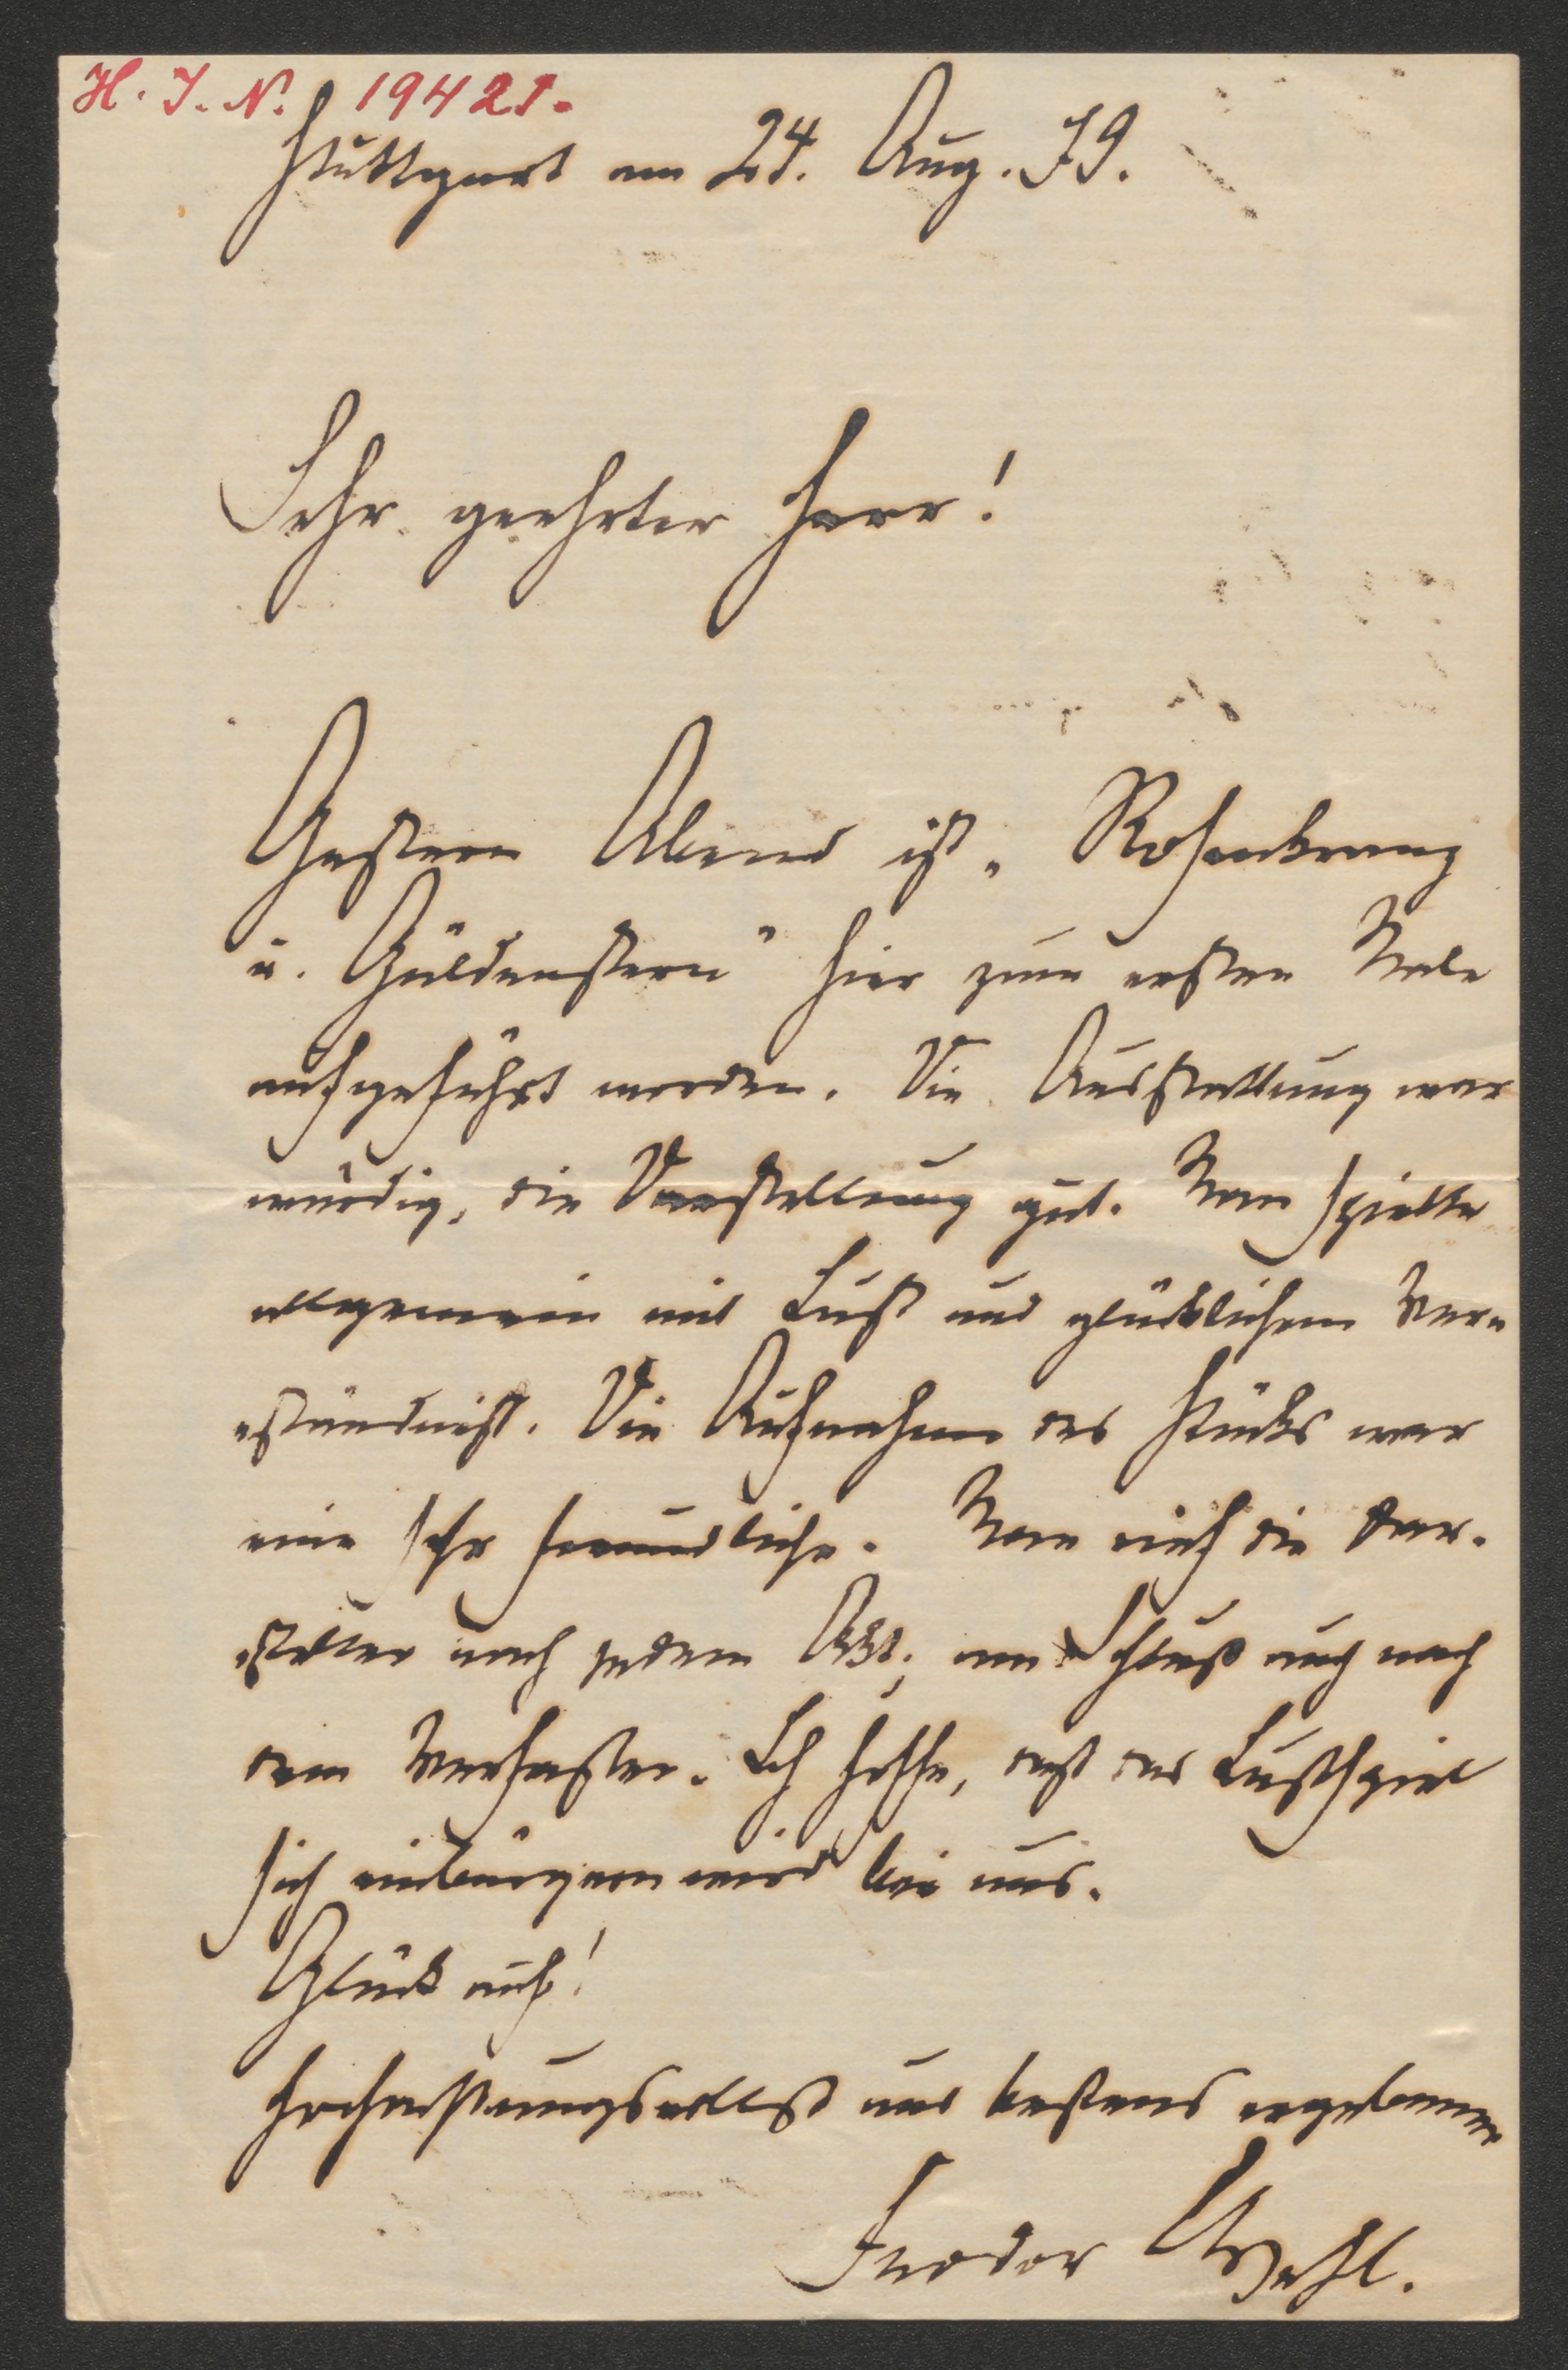 H. I. N. 19421.
Stuttgart am 24. Aug. 79.
Sehr geehrter Herr!
Gestern Abend ist „Rosenkranz
u. Güldenstern" hier zum ersten Male
aufgeführt worden. Die Ausstattung war
würdig, die Darstellung gut. Man spielte
allgemein mit Lust und glücklichem Ver-
ständniß. Die Aufnahme des Stücks war
eine sehr freundliche. Man rief die Dar-
steller nach jedem Akt, am Schluß auch nach
dem Verfasser. Ich hoffe, daß das Lustspiel
sich einbürgern wird bei uns.
Glück auf!
Hochachtungsvollst und bestens ergebener
Feodor Wehl.